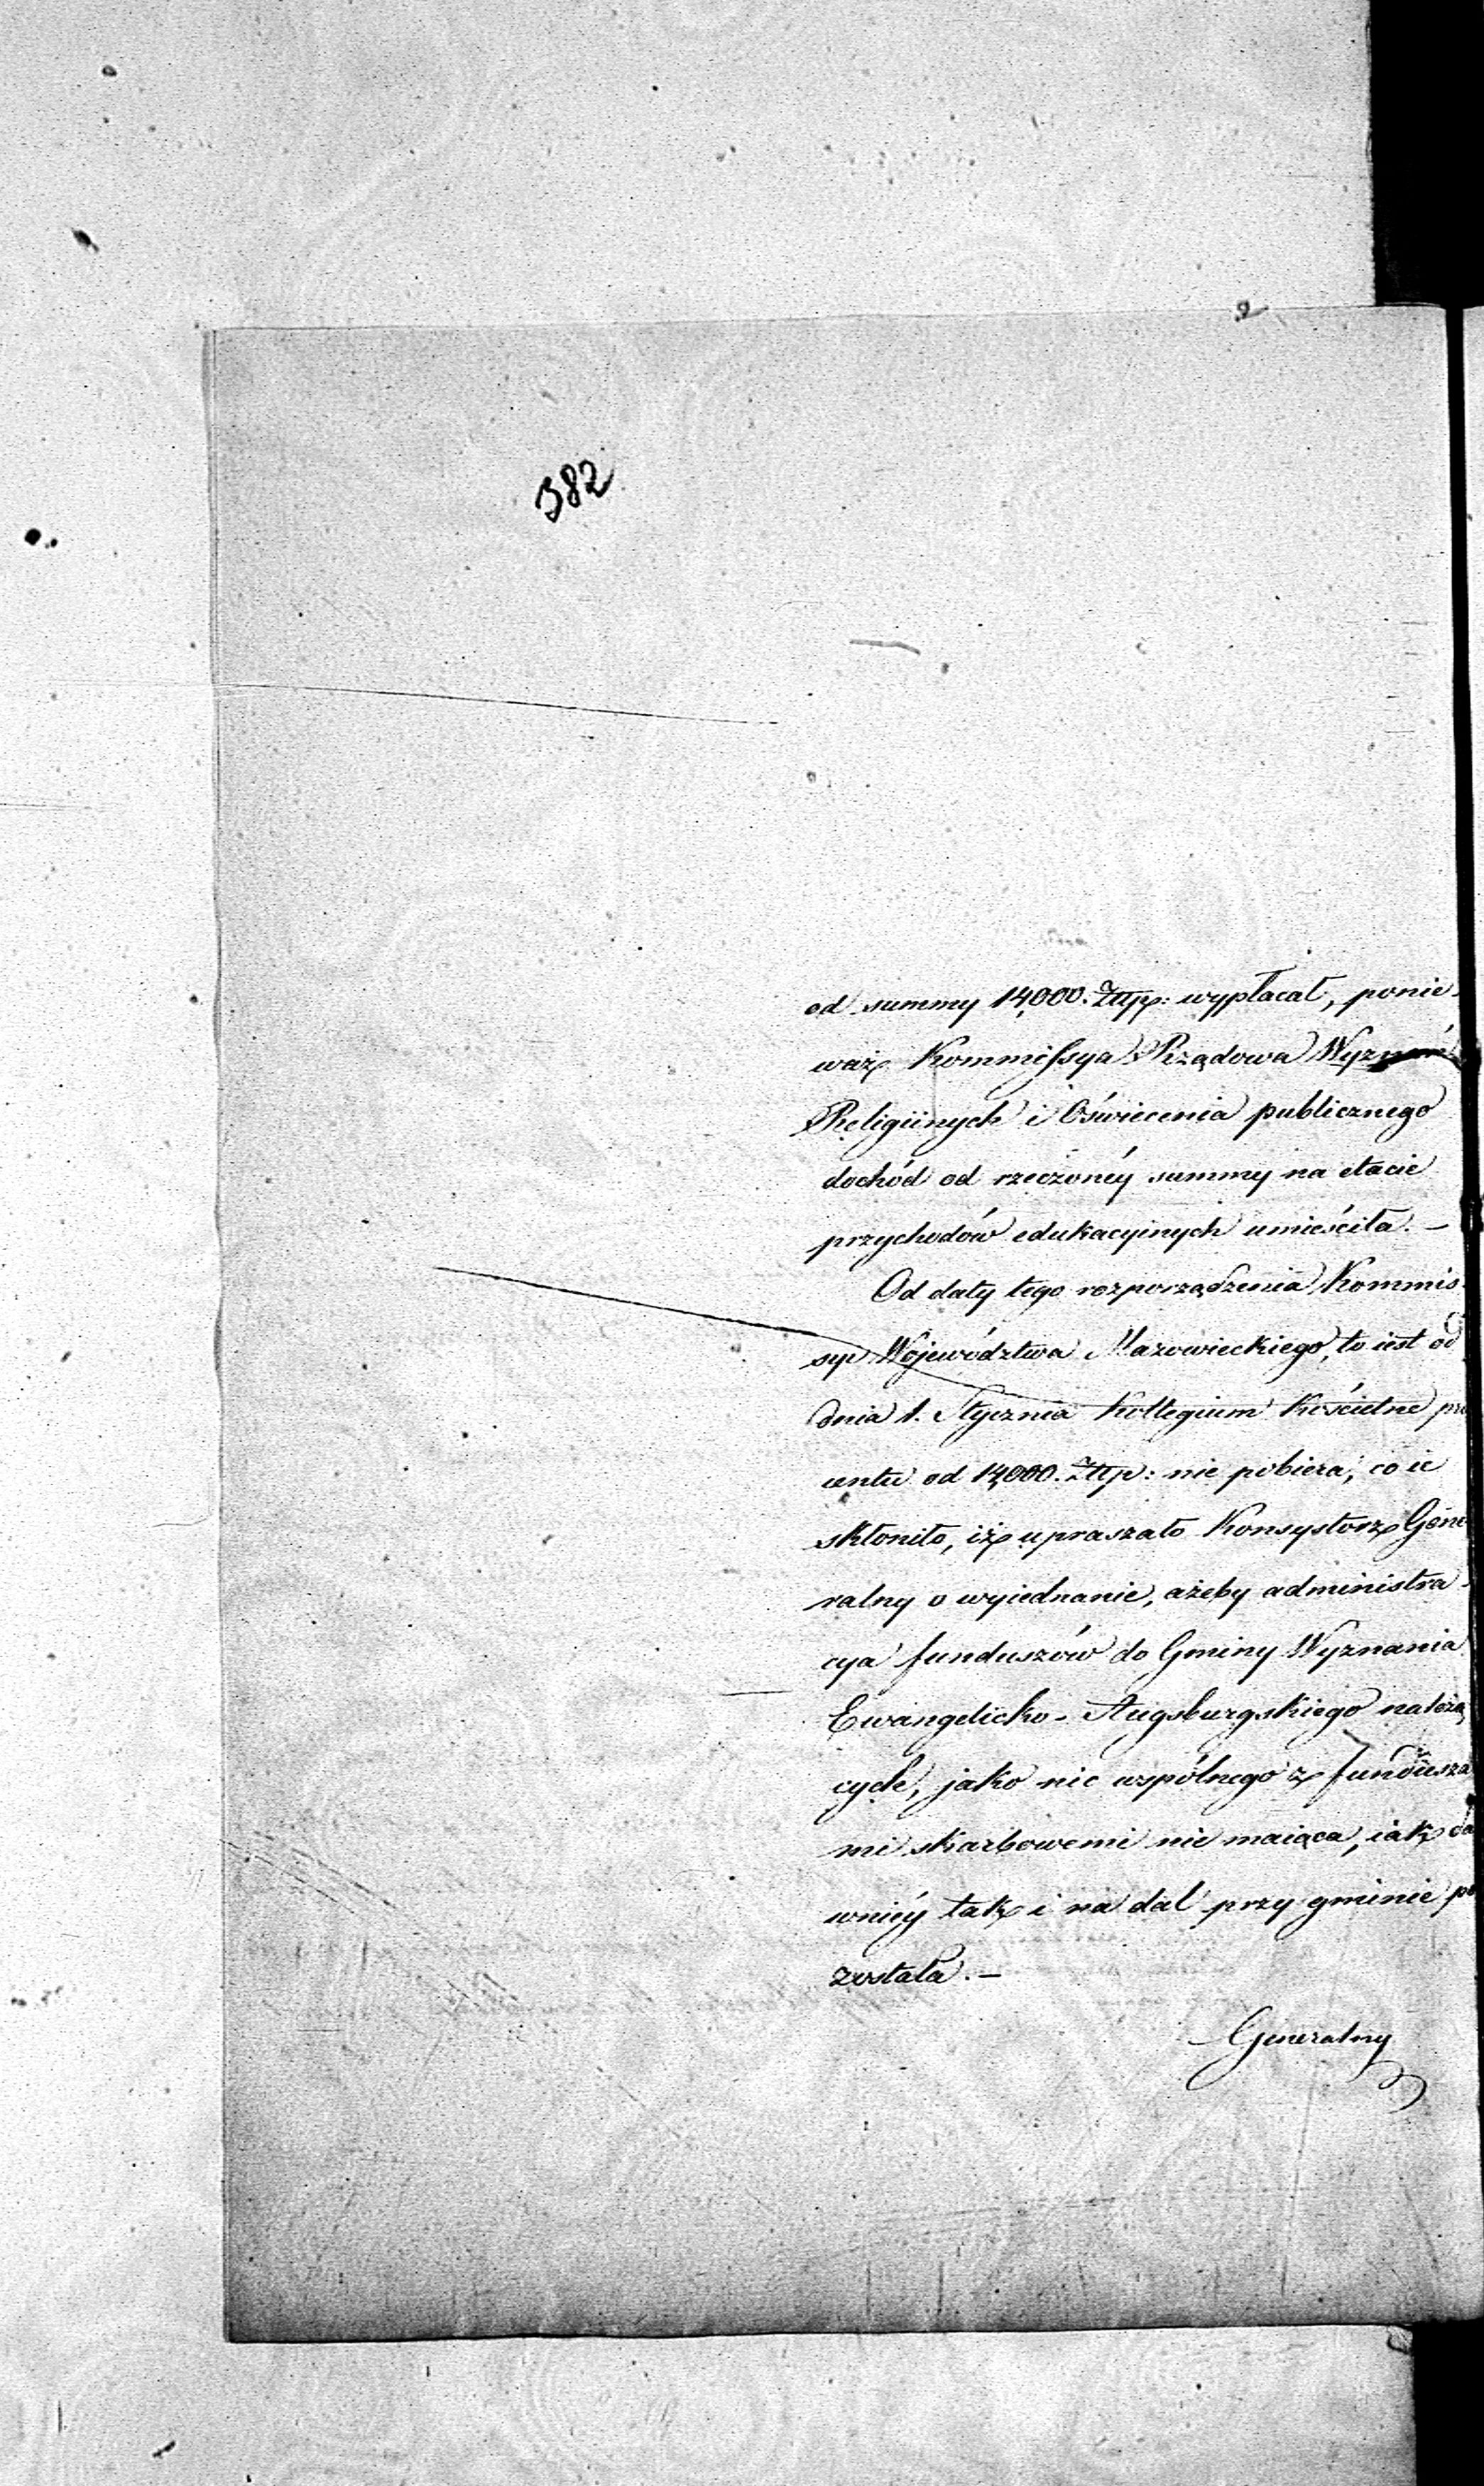 382
od summy 14,000. Złłp: wypłacał, ponie-
waż Kommissya Rządowa Wyznań
Religiinych i Oświecenia publicznego
dochód od rzeczonéy summy na etacie
przychodów edukacyinych umieściła. —
Od daty tego rozporządzenia Kommis-
syi Województwa Mazowieckiego, to iest od
dnia 1. Stycznia Kollegium Kościelne pro
centu od 14,000. Złłp: nie pobiera, co ie
skłoniło, iż upraszało Konsystorz Gene
ralny o wyiednanie, ażeby administra-
cya funduszów do Gminy Wyznania
Ewangelicko-Augsburgskiego należą
cych, jako nic wspólnego z fundusza
mi skarbowemi nie maiąca, iak da
wniéy tak i na dal przy gminie po
została. —
Generalny